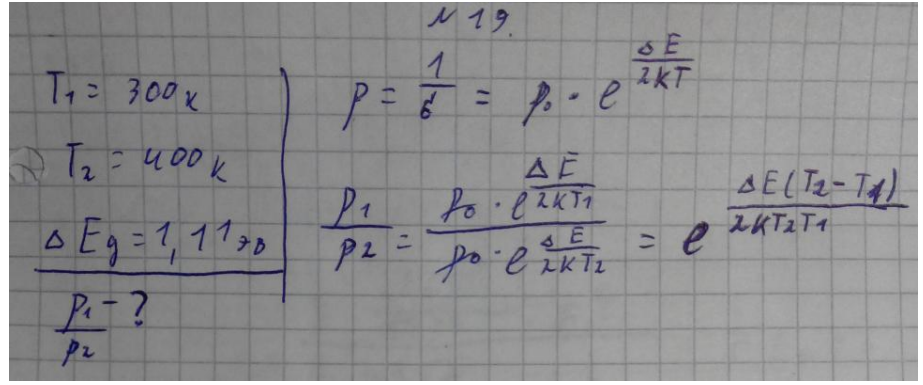 N 19.
T₁ = 300 к
T₂ = 400 к
ΔEg = 1,11 эв
p₁/p₂ - ?
p = 1/б = p₀ · e^(ΔE/2KT)
p₁/p₂ = (p₀ · e^(ΔE/2KT₁))/(p₀ · e^(ΔE/2KT₂)) = e^(ΔE(T₂-T₁)/2KT₂T₁)